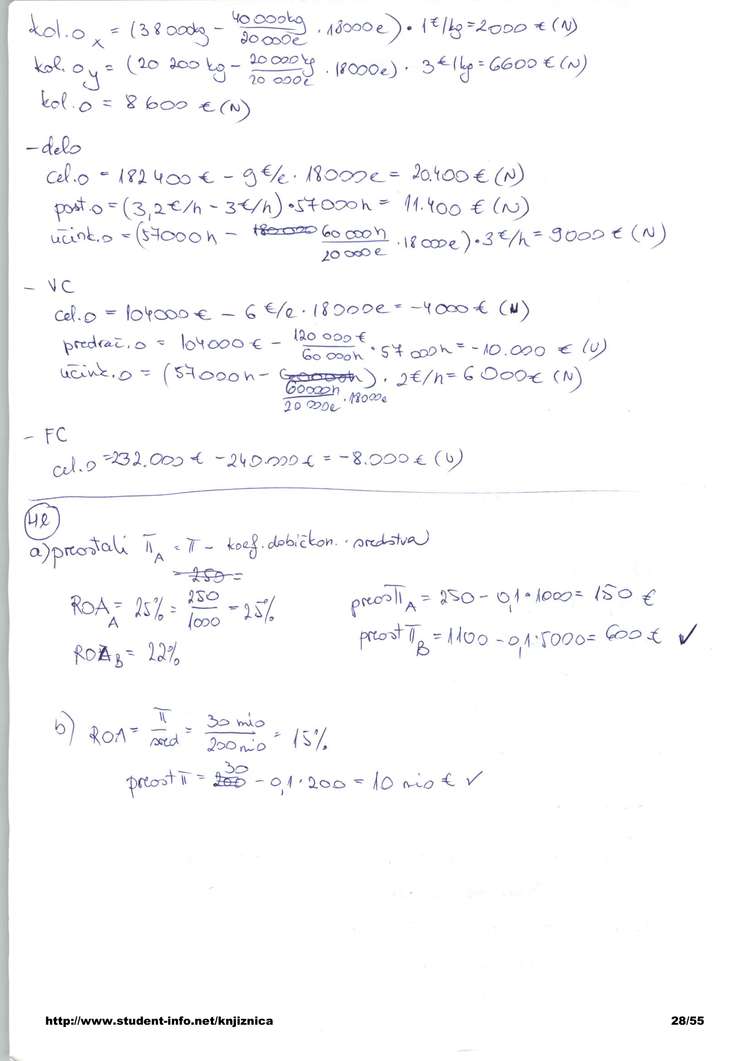 kol.o x = (38000kg - 40 000kg / 20 000e · 18000e) · 1€/kg = 2000 € (N)
kol. o y = (20 200 kg - 20 000 kg / 20 000e · 18000e) · 3 €/kg = 6600 € (N)
kol. o = 8 600 € (N)
- delo
cel.o = 182 400 € - 9 €/e · 18000e = 20.400 € (N)
post.o = (3,2 €/h - 3 €/h) · 57000h = 11.400 € (N)
učink.o = (57000h - 60 000h / 20 000e · 18000e) · 3 €/h = 9000 € (N)
- VC
cel.o = 104000 € - 6 €/e · 18000e = -4000 € (N)
predrač.o = 104000 € - 120 000 € / 60 000h · 57 000h = -10.000 € (U)
učink.o = (57000h - 60000h / 20 000e · 18000e) · 2 €/h = 6 000 € (N)
- FC
cel.o = 232.000 € - 240.000 € = -8.000 € (U)
42
a) preostali π A = π - koef. dobičkon. · sredstva
250 =
ROA A = 25% = 250 / 1000 = 25%
preost π A = 250 - 0,1 · 1000 = 150 €
ROA B = 22%
preost π B = 1100 - 0,1 · 5000 = 600 € ✓
b) ROA = π / sred = 30 mio / 200 mio = 15%
preost π = 30 - 0,1 · 200 = 10 mio € ✓
http://www.student-info.net/knjiznica 28/55